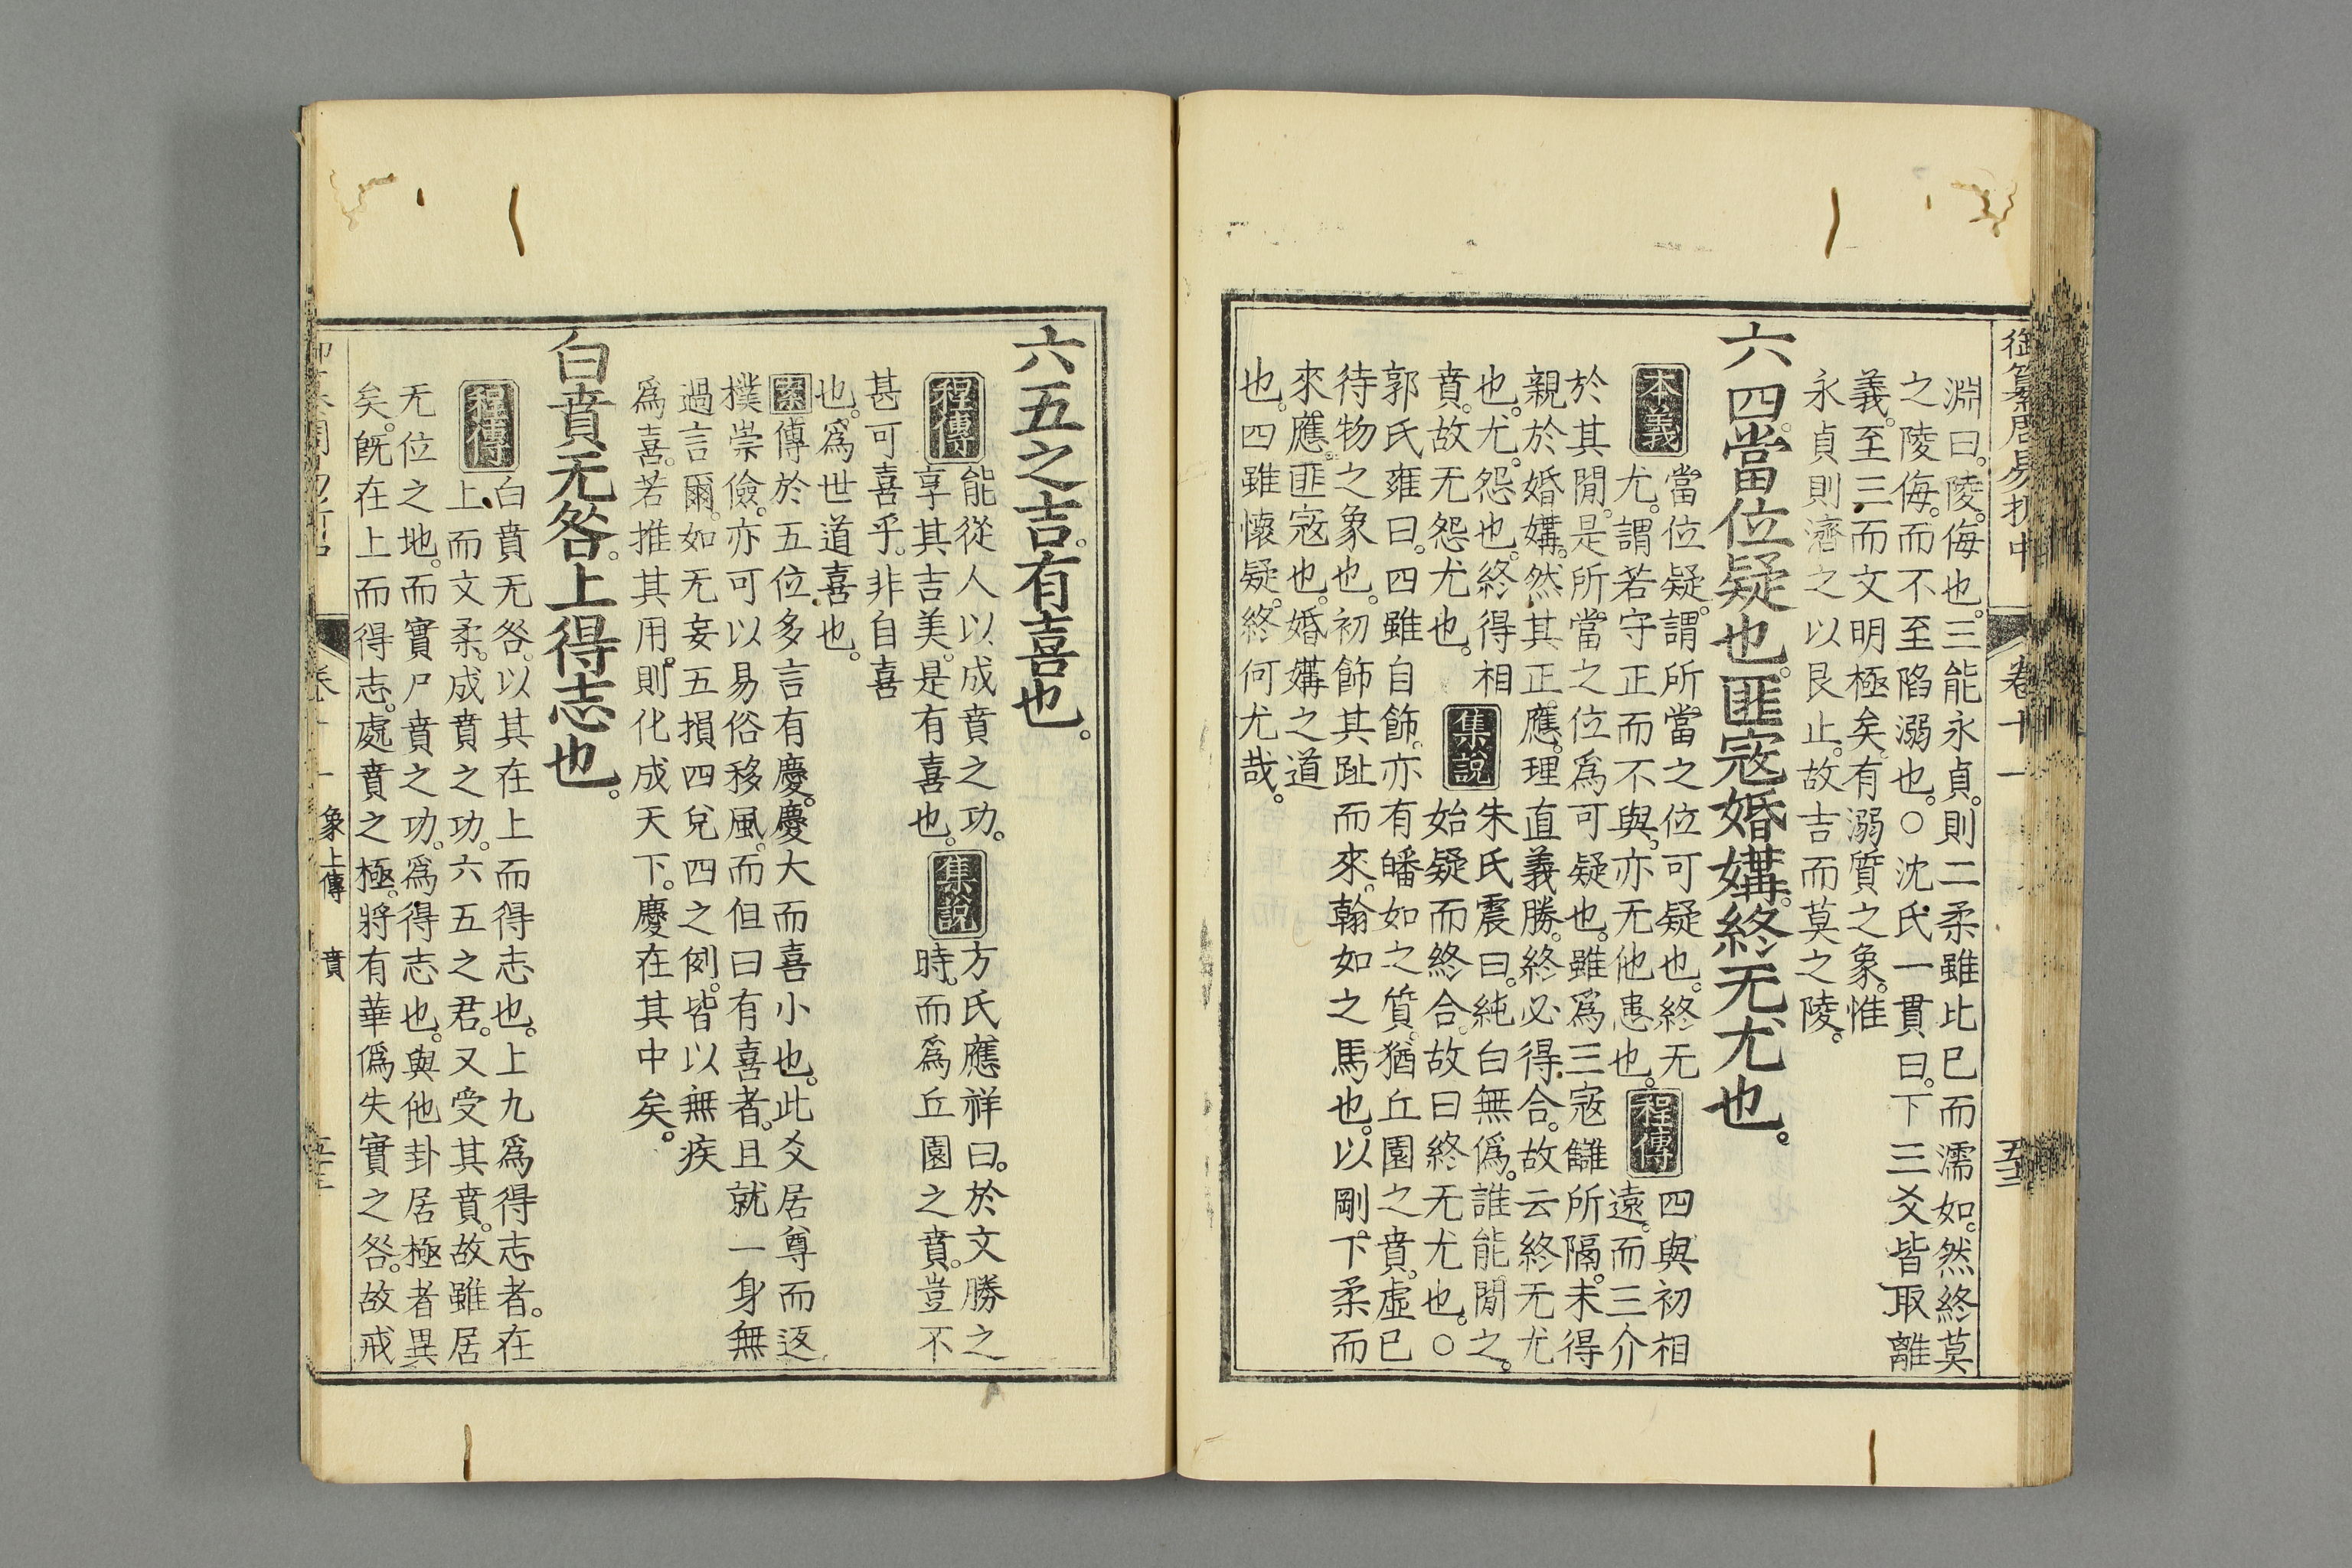 御纂周易折中
卷十一
淵曰。陵。侮也。三能永貞。則二柔雖比已而濡如。然終莫
之陵侮。而不至陷溺也。○沈氏一貫曰。下三爻皆取離
義。至三而文明極矣。有溺質之象。惟
永貞則濟之以艮止。故吉而莫之陵。
六四。當位疑也。匪寇婚媾。終无尤也。
本義
當位疑。謂所當之位可疑也。終无
尤。謂若守正而不與。亦无他患也。
程傳
四與初相
遠。而三介
於其閒。是所當之位爲可疑也。雖爲三寇讎所隔。未得
親於婚媾。然其正應。理直義勝。終必得合。故云終无尤
也。尤。怨也。終得相
賁。故无怨尤也。
集說
朱氏震曰。純白無僞。誰能閒之。
始疑而終合。故曰終无尤也。○
郭氏雍曰。四雖自飾。亦有皤如之質。猶丘園之賁。虛已
待物之象也。初飾其趾而來。翰如之馬也。以剛下柔而
來應。匪寇也。婚媾之道
也。四雖懷疑。終何尤哉。
六五之吉。有喜也。
程傳
能從人以成賁之功。
享其吉美。是有喜也。
集說
方氏應祥曰。於文勝之
時。而爲丘園之賁。豈不
甚可喜乎。非自喜
也。爲世道喜也。
案
傳於五位多言有慶。慶大而喜小也。此爻居尊而返
樸崇儉。亦可以易俗移風。而但曰有喜者。且就一身無
過言爾。如无妄五損四兌四之例。皆以無疾
爲喜。若推其用。則化成天下。慶在其中矣。
白賁无咎。上得志也。
程傳
白賁无咎。以其在上而得志也。上九爲得志者。在
上而文柔。成賁之功。六五之君。又受其賁。故雖居
无位之地。而實尸賁之功。爲得志也。與他卦居極者異
矣。旣在上而得志。處賁之極。將有華僞失實之咎。故戒
象上傳 賁